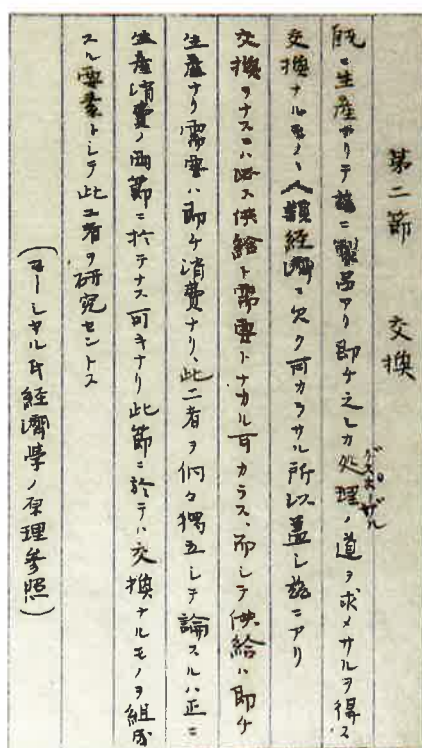 第二節　交換
既ニ生産アリテ茲ニ製品アリ即チ之レカ処理ノ道ヲ求メサルヲ得ス
ヂスポーザル
交換ナルモノヽ人類経済ニ欠ク可カラサル所以蓋シ茲ニアリ
交換ヲナスニハ必ス供給ト需要トナカル可カラス、而シテ供給ハ即チ
生産ナリ需要ハ即チ消費ナリ、此二者ヲ個々独立シテ論スルハ正ニ
生産消費ノ両節ニ於テナス可キナリ此節ニ於テハ交換ナルモノヲ組成
スル要素トシテ此二者ヲ研究セントス
（マーシャル氏経済学ノ原理参照）